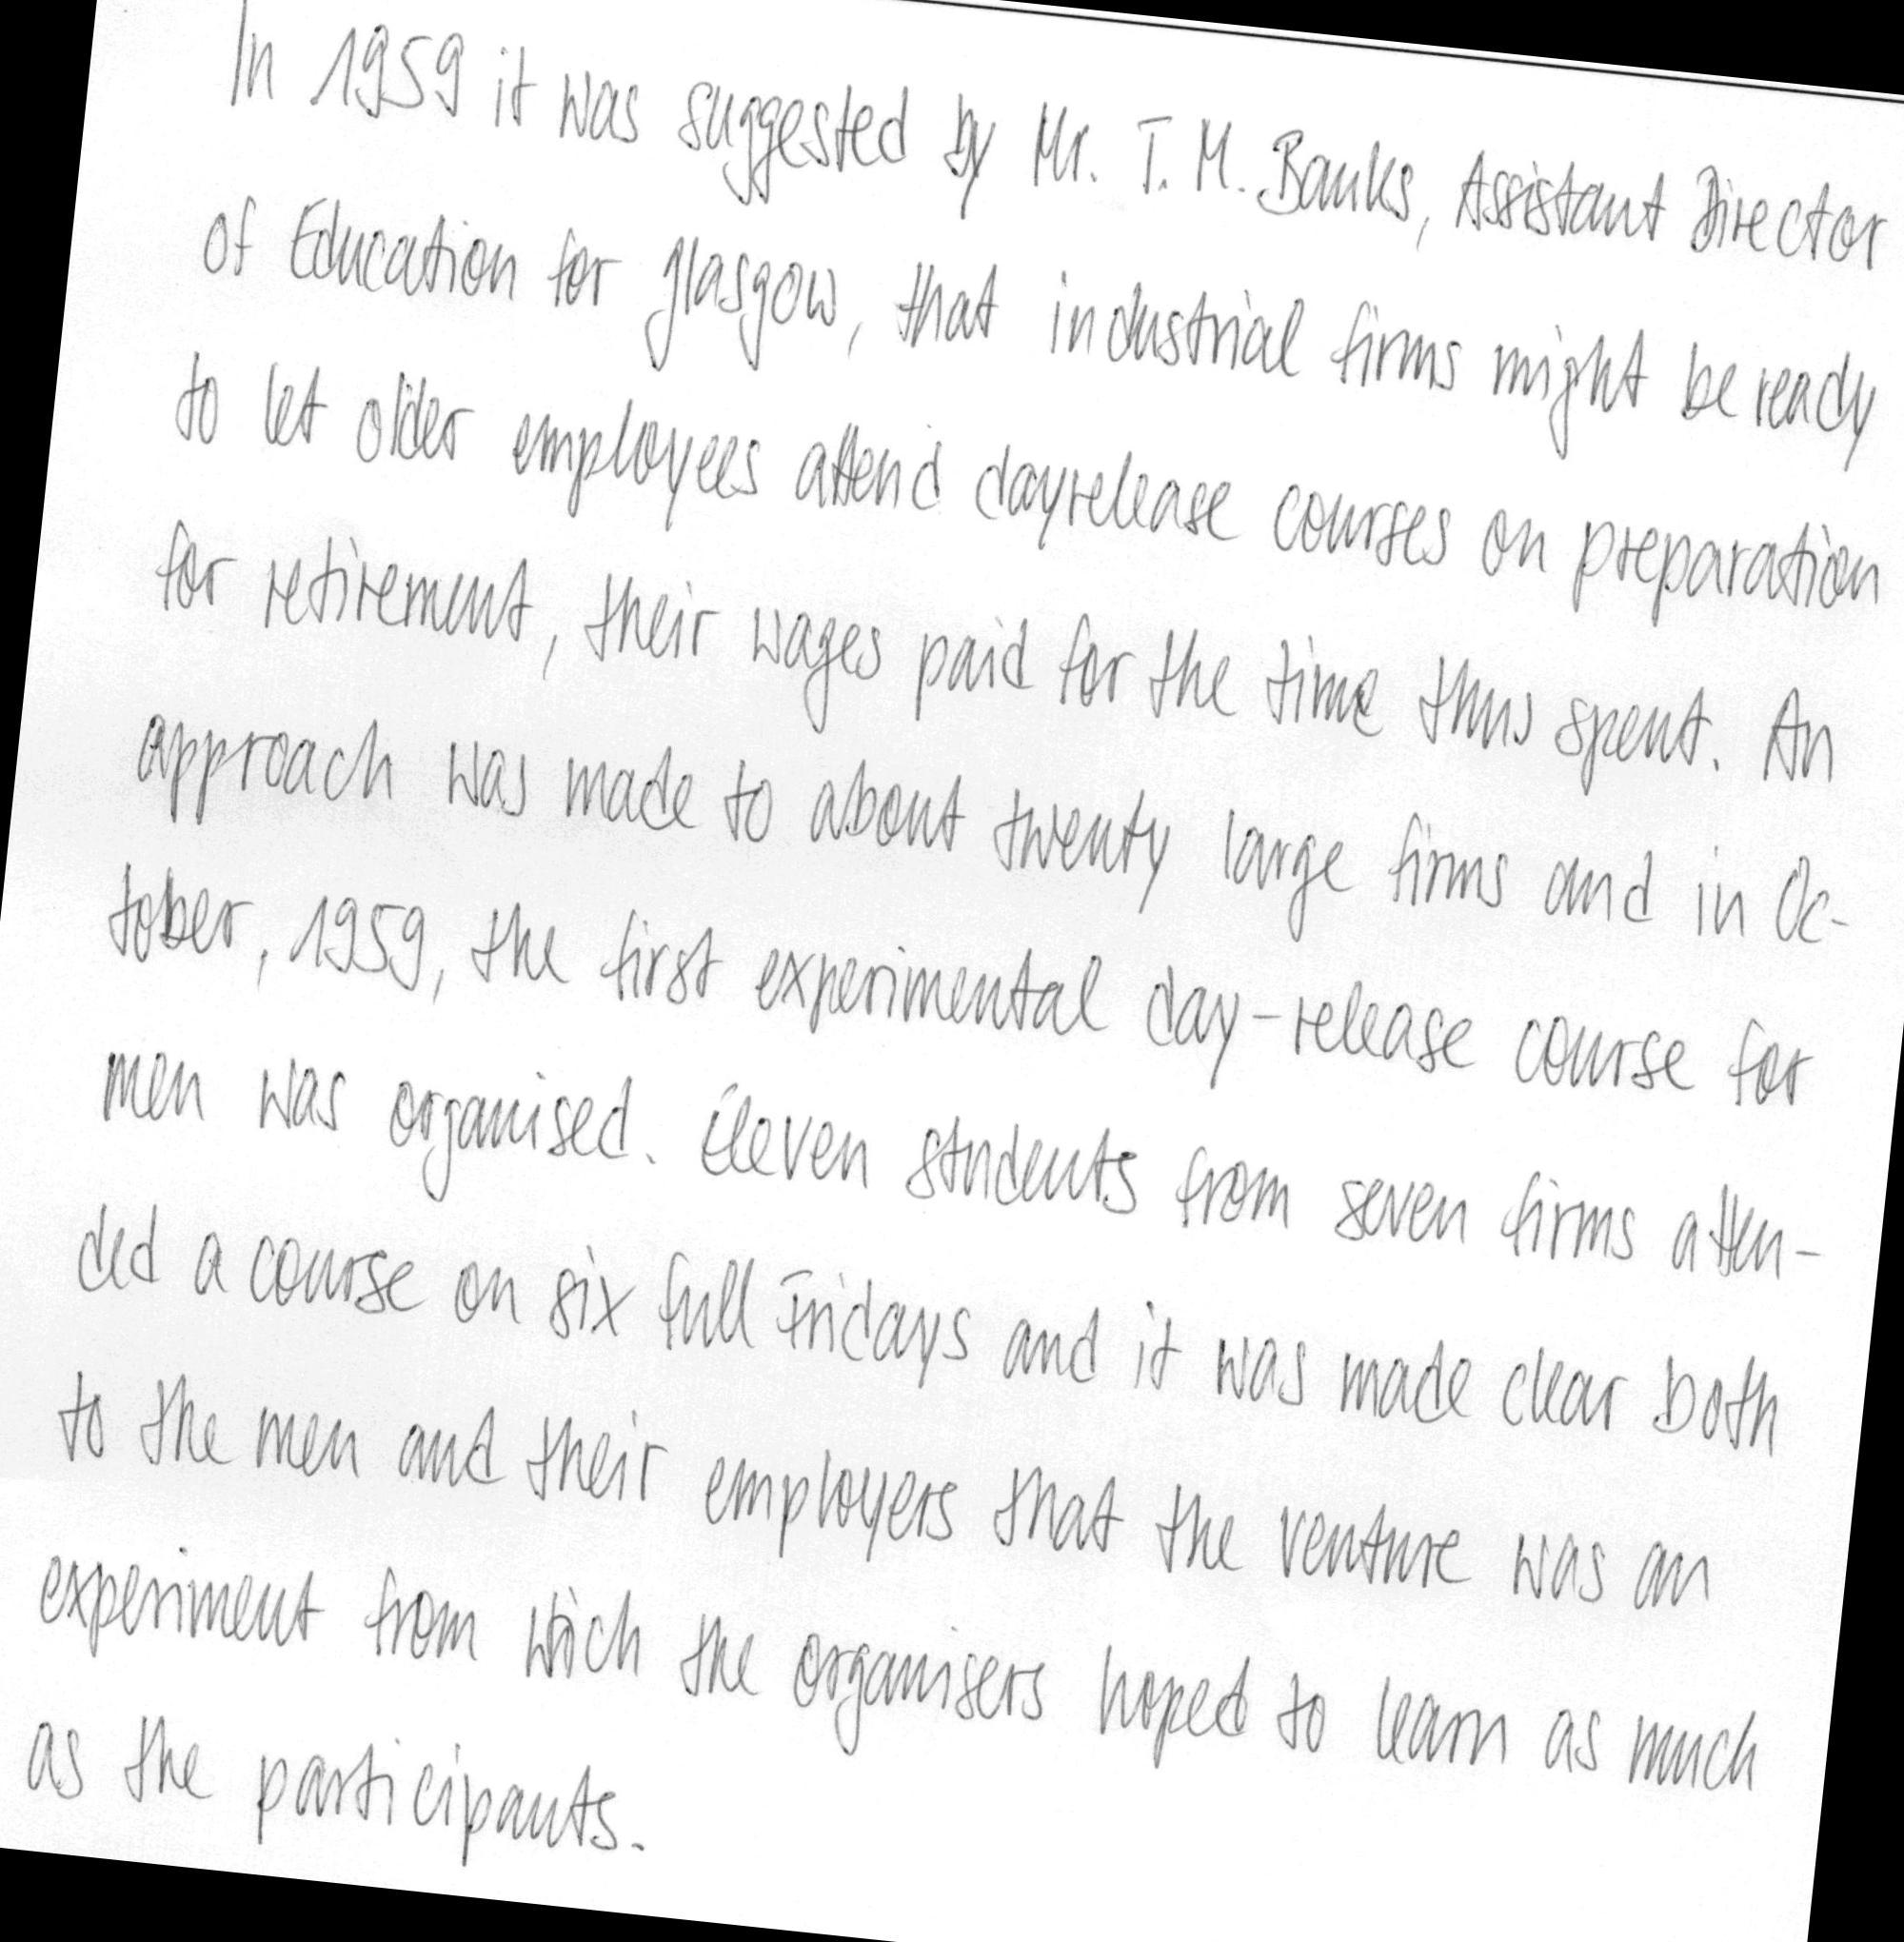 In 1959 it was suggested by Mr. T. M. Banks, Assistant Director
of Education for Glasgow, that industrial firms might be ready
to let older employees attend dayrelease courses on preparation
for retirement, their wages paid for the time thus spent. An
approach was made to about twenty large firms and in Oc-
tober, 1959, the first experimental day-release course for
men was organised. Eleven students from seven firms atten-
ded a course on six full Fridays and it was made clear both
to the men and their employers that the venture was an
experiment from wich the organisers hoped to learn as much
as the participants.